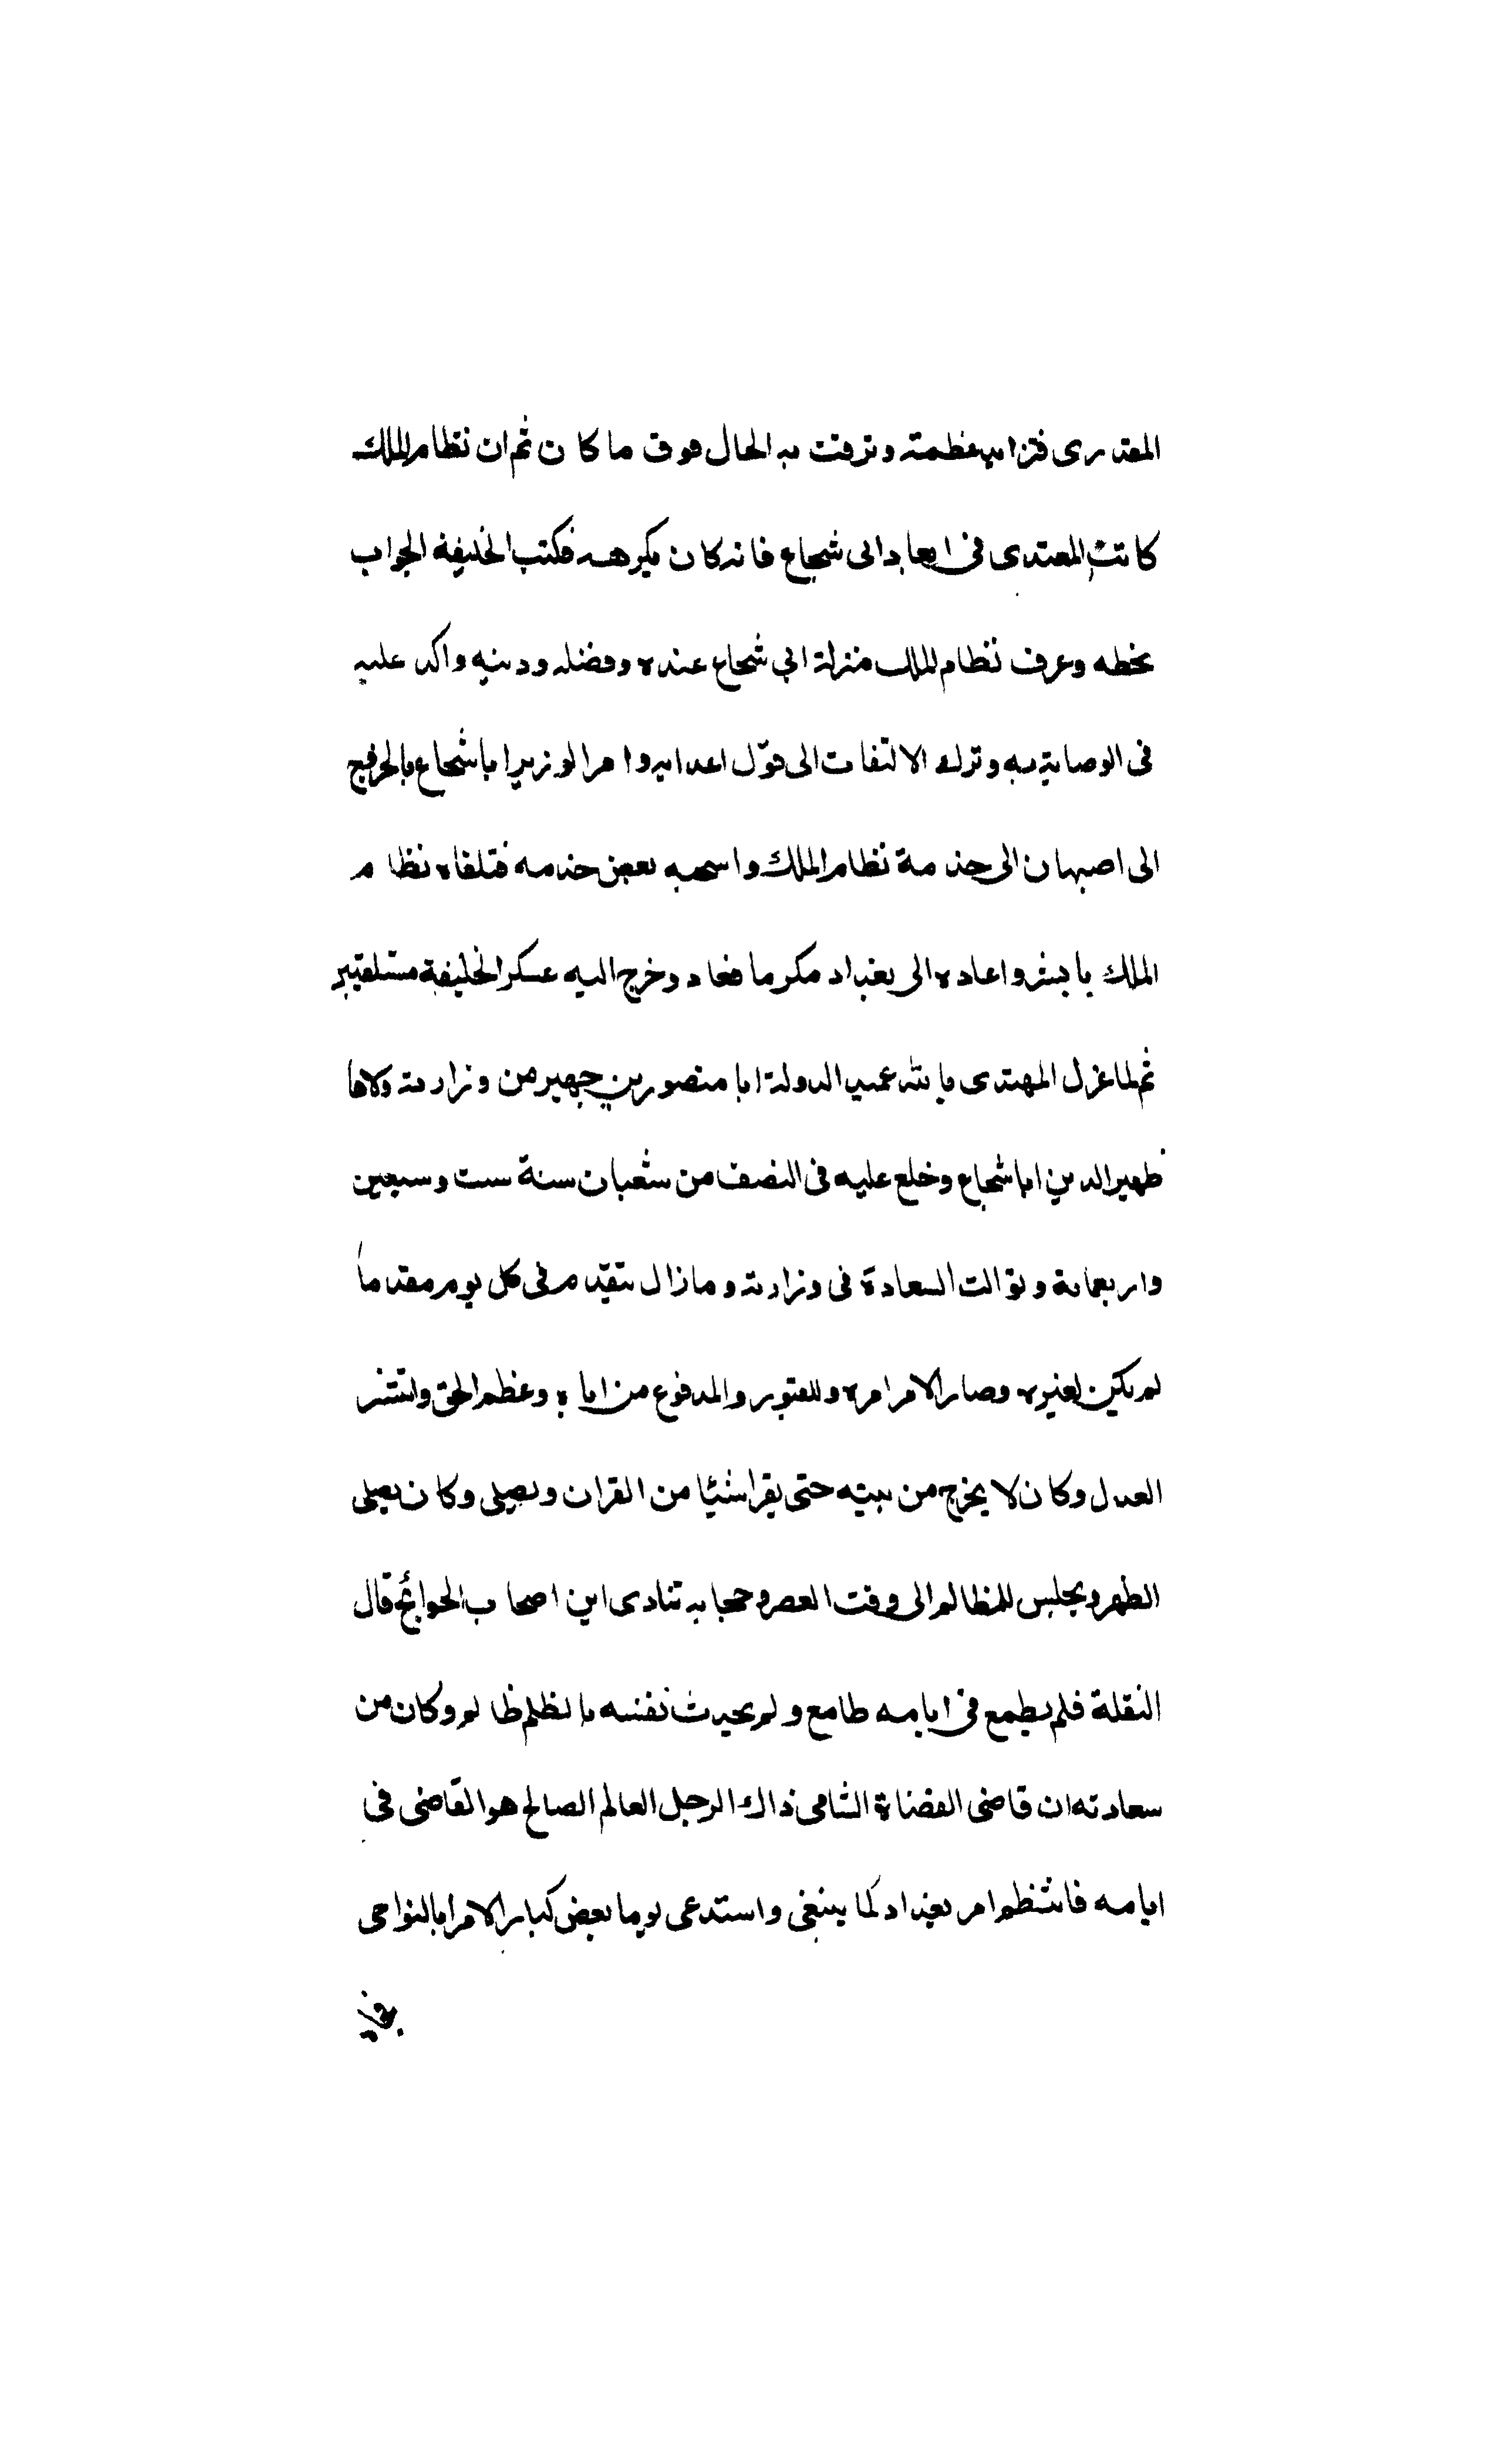 المقتدى فتزايد عظمته وترقت به الحال فوق ما كان ثم ان نظام الملك
كاتب المقتدى فى ابعاد ابى شجاع فانه كان يكرهه فكتب الخليفة الجواب
بخطه وعرف نظام الملك منزلة ابي شجاع عنده وفضله ودينه واكد عليه
فى الوصاية به وترك الالتفات الى قول اعدايه وامر الوزير ابا شجاع بالخروج
الى اصبهان الى خدمة نظام الملك واصحبه بعض خدمه فتلقاه نظام
الملك بالبشر واعاده الى بغداد مكرما فعاد وخرج اليه عسكر الخليفة مستقبلين
ثم لما عزل المهتدى بالله عميد الدولة ابا منصور بن جهير من وزارته ولاها
ظهير الدين ابا شجاع وخلع عليه فى النصف من شعبان سنة ست وسبعين
واربعماية وتوالت السعادة فى وزارته وما زال يتقدم فى كل يوم مقدما
لم يكن لغيره وصار الامر امره والمدفوع من اباه وعظم الحق وانتشر
العدل وكان لا يخرج من بيته حتى يقرا شيا من القران ويصلى وكان يصلى
الظهر ويجلس للمظالم الى وقت العصر وحجابه تنادى اين اصحاب الحوائج قال
النقلة فلم يطمع فى ايامه طامع ولم يحدث نفسه بالظلم ظالم وكان من
سعادته ان قاضى القضاة الشامى ذاك الرجل العالم الصالح هو القاضى فى
ايامه فانتظم امر بغداد كما ينبغى واستدعى يوما بعض كبار الامرا بالنواحى